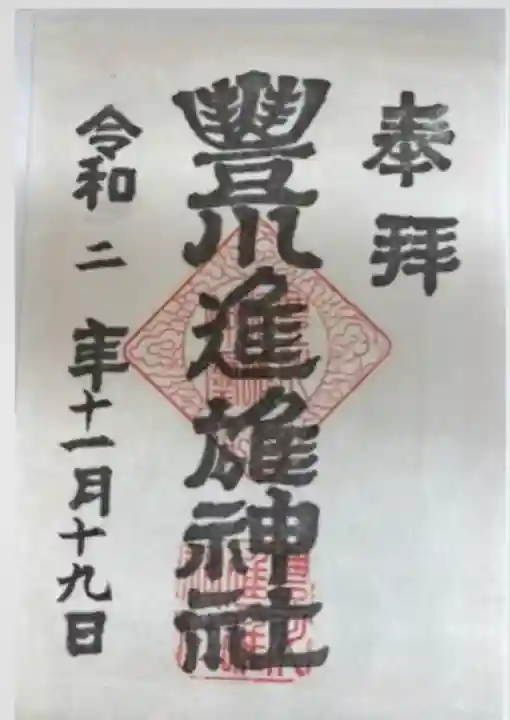 奉拝
豐川進雄神社
令和二年十一月十九日